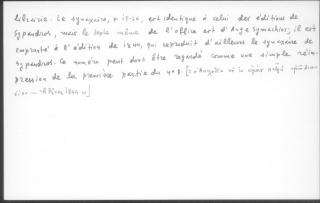 librairie. Le synaxaire, p. 15-26, est identique à celui des éditions de
Spyandros, mais le texte même de l'office est d'Ange Symachios; il est
emprunté à l'édition de 1844, qui reproduit d'ailleurs le synaxaire de
Spyandros. Ce numéro peut donc être regardé comme une simple réim-
pression de la première partie du n° 8. [